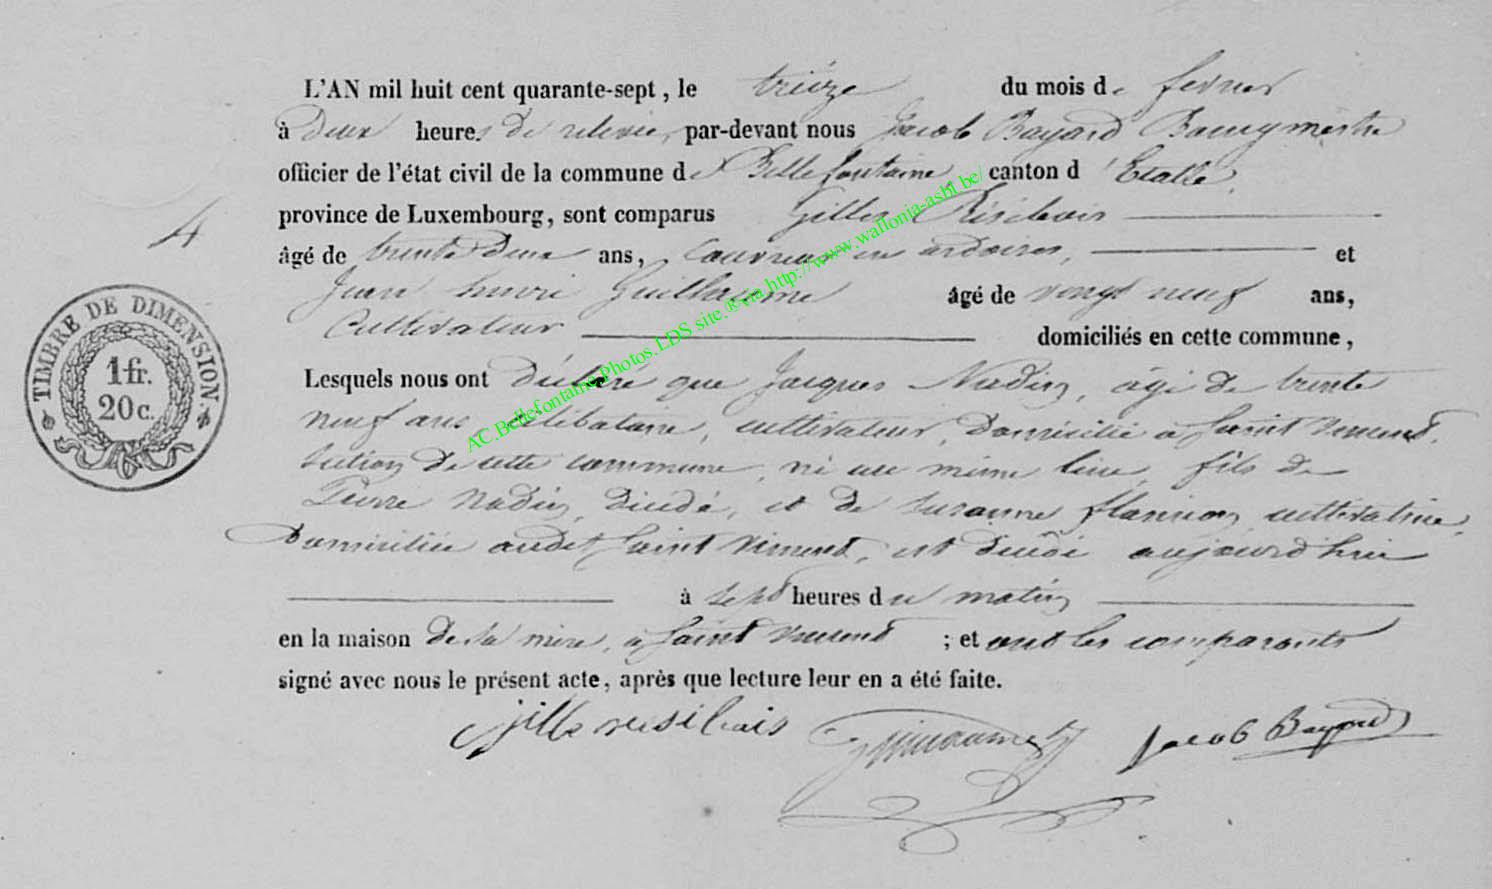 L'AN mil huit cent quarante-sept, le treize du mois de fevrier
à deux heures de relevée, par-devant nous Jacob Bayard Bourgmestre
officier de l'état civil de la commune de Bellefontaine, canton d'Etalle,
province de Luxembourg, sont comparus Gilles Résibois
4
âgé de trente deux ans, couvreur en ardoises, et
Jean henri Guillaume âgé de vingt neuf ans,
Cultivateur domiciliés en cette commune,
TIMBRE DE DIMENSION
1 fr.
20 c.
Lesquels nous ont déclaré que Jacques Nadin, âgé de trente
neuf ans, célibataire, cultivateur, domicilié à Saint Vincent,
section de cette commune, né au même lieu, fils de
Pierre Nadin, décédé, et de Suzanne flamion, cultivatrice,
Domiciliée audit Saint Vincent, est décédé aujourd'hui
à sept heures du matin
en la maison de sa mère, à Saint Vincent ; et ont les comparants
signé avec nous le présent acte, après que lecture leur en a été faite.
gille resibois Guillaume Jacob Bayard
AC.Bellefontaine.Photos.LDS site.®via http://www.wallonia-asbl.be/